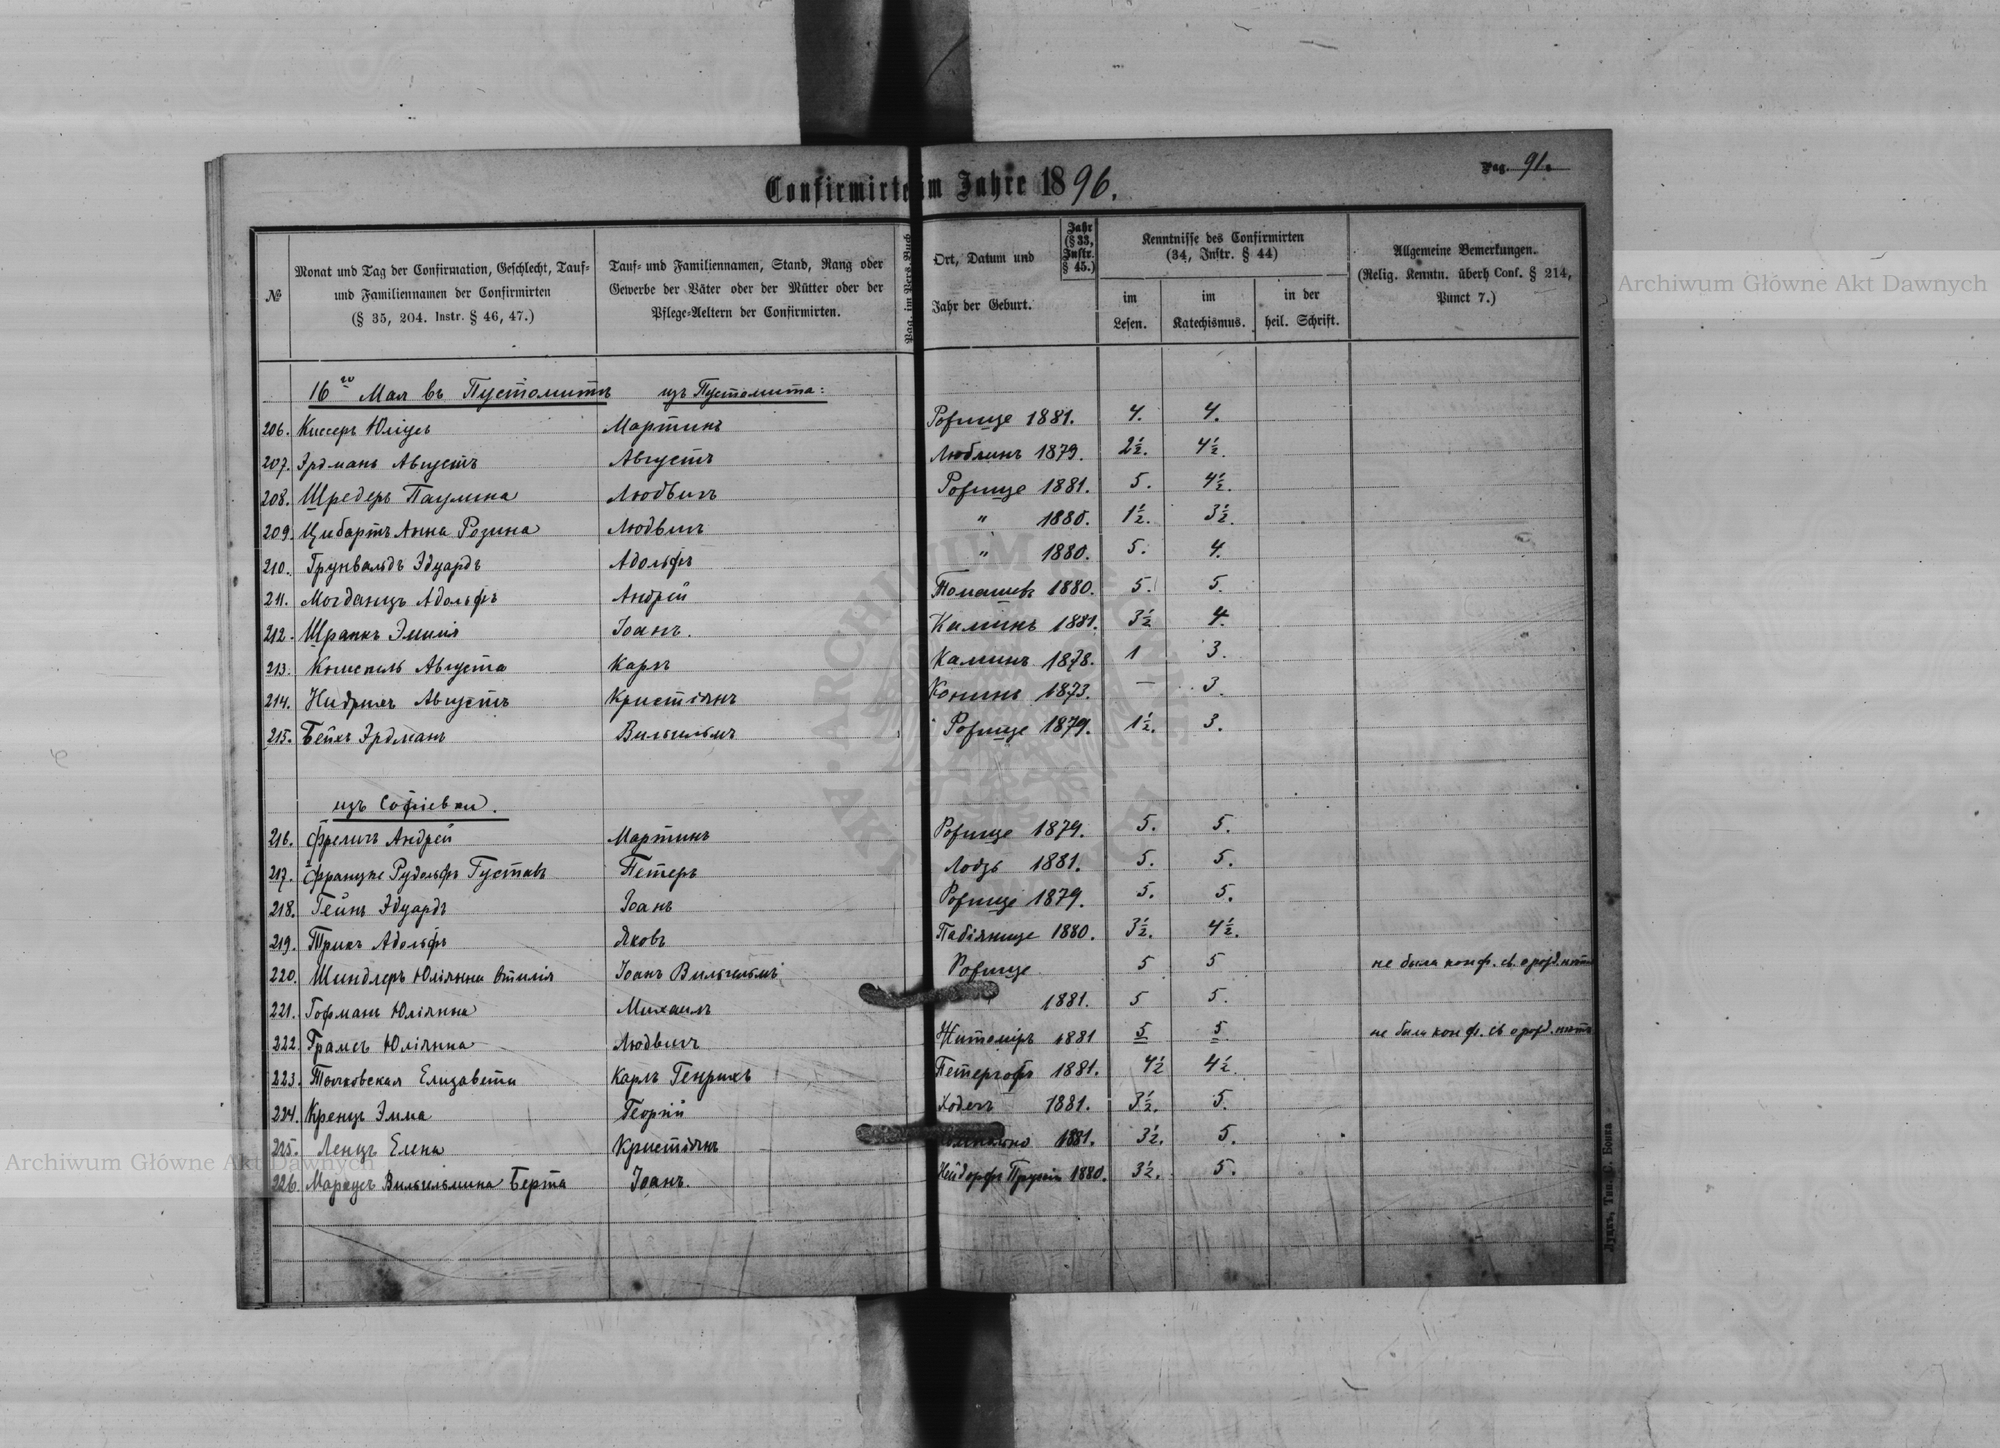 Confirmirte im Jahre 1896.
Pag. 91.
№
Monat und Tag der Confirmation, Geschlecht, Tauf-
und Familiennamen der Confirmirten
(§ 35, 204. Instr. § 46, 47.)
Tauf- und Familiennamen, Stand, Rang oder
Gewerbe der Väter oder der Mütter oder der
Pflege-Aeltern der Confirmirten.
Pag. im Pers. Buch
Ort, Datum und
Jahr der Geburt.
Jahr
(§ 33,
Instr.
§ 45.)
Kenntnisse des Confirmirten
(34, Instr. § 44)
im
Lesen.
im
Katechismus.
in der
heil. Schrift.
Allgemeine Bemerkungen.
(Relig. Kenntn. überh Conf. § 214,
Punct 7.)
16го Мая въ Пустомитѣ изъ Пустомита:
206. Кисеръ Юліусъ Мартинъ Рожище 1881. 4. 4.
207. Эрдманъ Августъ Августъ Люблинъ 1879. 2½. 4½.
208. Шредеръ Паулина Людвигъ Рожище 1881. 5. 4½.
209. Цибартъ Анна Розина Людвигъ " 1880. 1½. 3½.
210. Грунвальдъ Эдуардъ Адольфъ " 1880. 5. 4.
211. Могданцъ Адольфъ Андрей Томашевъ 1880. 5. 5.
212. Шрапкъ Эмилія Іоанъ. Калишъ 1881. 3½ 4.
213. Книспель Августа Карлъ Калишъ 1878. 1 3.
214. Нидрихъ Августъ Кристіянъ Конинъ 1873. — 3.
215. Бейхъ Эрдманъ Вильгельмъ Рожище 1879. 1½. 3.
изъ Софіевки.
216. Фрелихъ Андрей Мартинъ Рожище 1879. 5. 5.
217. Францке Рудольфъ Густавъ Петеръ Лодзь 1881. 5. 5.
218. Гейнъ Эдуардъ Іоанъ Рожище 1879. 5. 5.
219. Трикъ Адольфъ Яковъ Пабіянице 1880. 3½. 4½.
220. Шиндлеръ Юліянна Отилія Іоанъ Вильгельмъ Рожище 5 5 не была конф. св.
221. Гофманъ Юліянна Михаилъ 1881. 5 5.
222. Грамсъ Юліянна Людвигъ Житоміръ 1881 5 5. не была конф. св
223. Елизавета Карлъ Генрихъ Петергофъ 1881. 4½ 4½.
224. Кренцъ Эмма Георгій Ходечъ 1881. 3½. 5.
225. Ленцъ Елена Кристіянъ 1881. 3½. 5.
226. Маркусъ Вильгельмина Берта Іоанъ. Нейдорфъ Пруссіи 1880. 3½. 5.
Луцкъ, Тип. С. Бонка
Archiwum Główne Akt Dawnych
Archiwum Główne Akt Dawnych